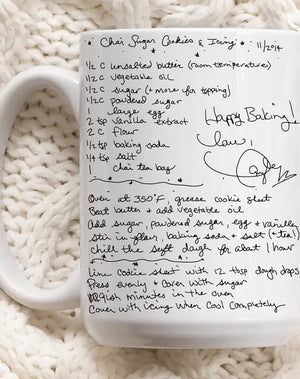 * Chai Sugar Cookies & Icing * 11/2014
1/2 C unsalted butter (room temperature)
1/2 C vegetable oil
1/2 C sugar (+ more for topping)
1/2 C powdered sugar
1 large egg
2 tsp vanilla extract
2 C flour
1/2 tsp baking soda
1/4 tsp salt
1 chai tea bag
Happy Baking!
Love,
Oven at 350°F, grease cookie sheet
Beat butter & add vegetable oil
Add sugar, powdered sugar, egg & vanilla
stir in flour, baking soda, & salt (+ tea!)
chill the soft dough for about 1 hour
Line cookie sheet with 12 tbsp dough drops
Press evenly & Cover with sugar
9ish minutes in the oven
Cover with icing when cool completely